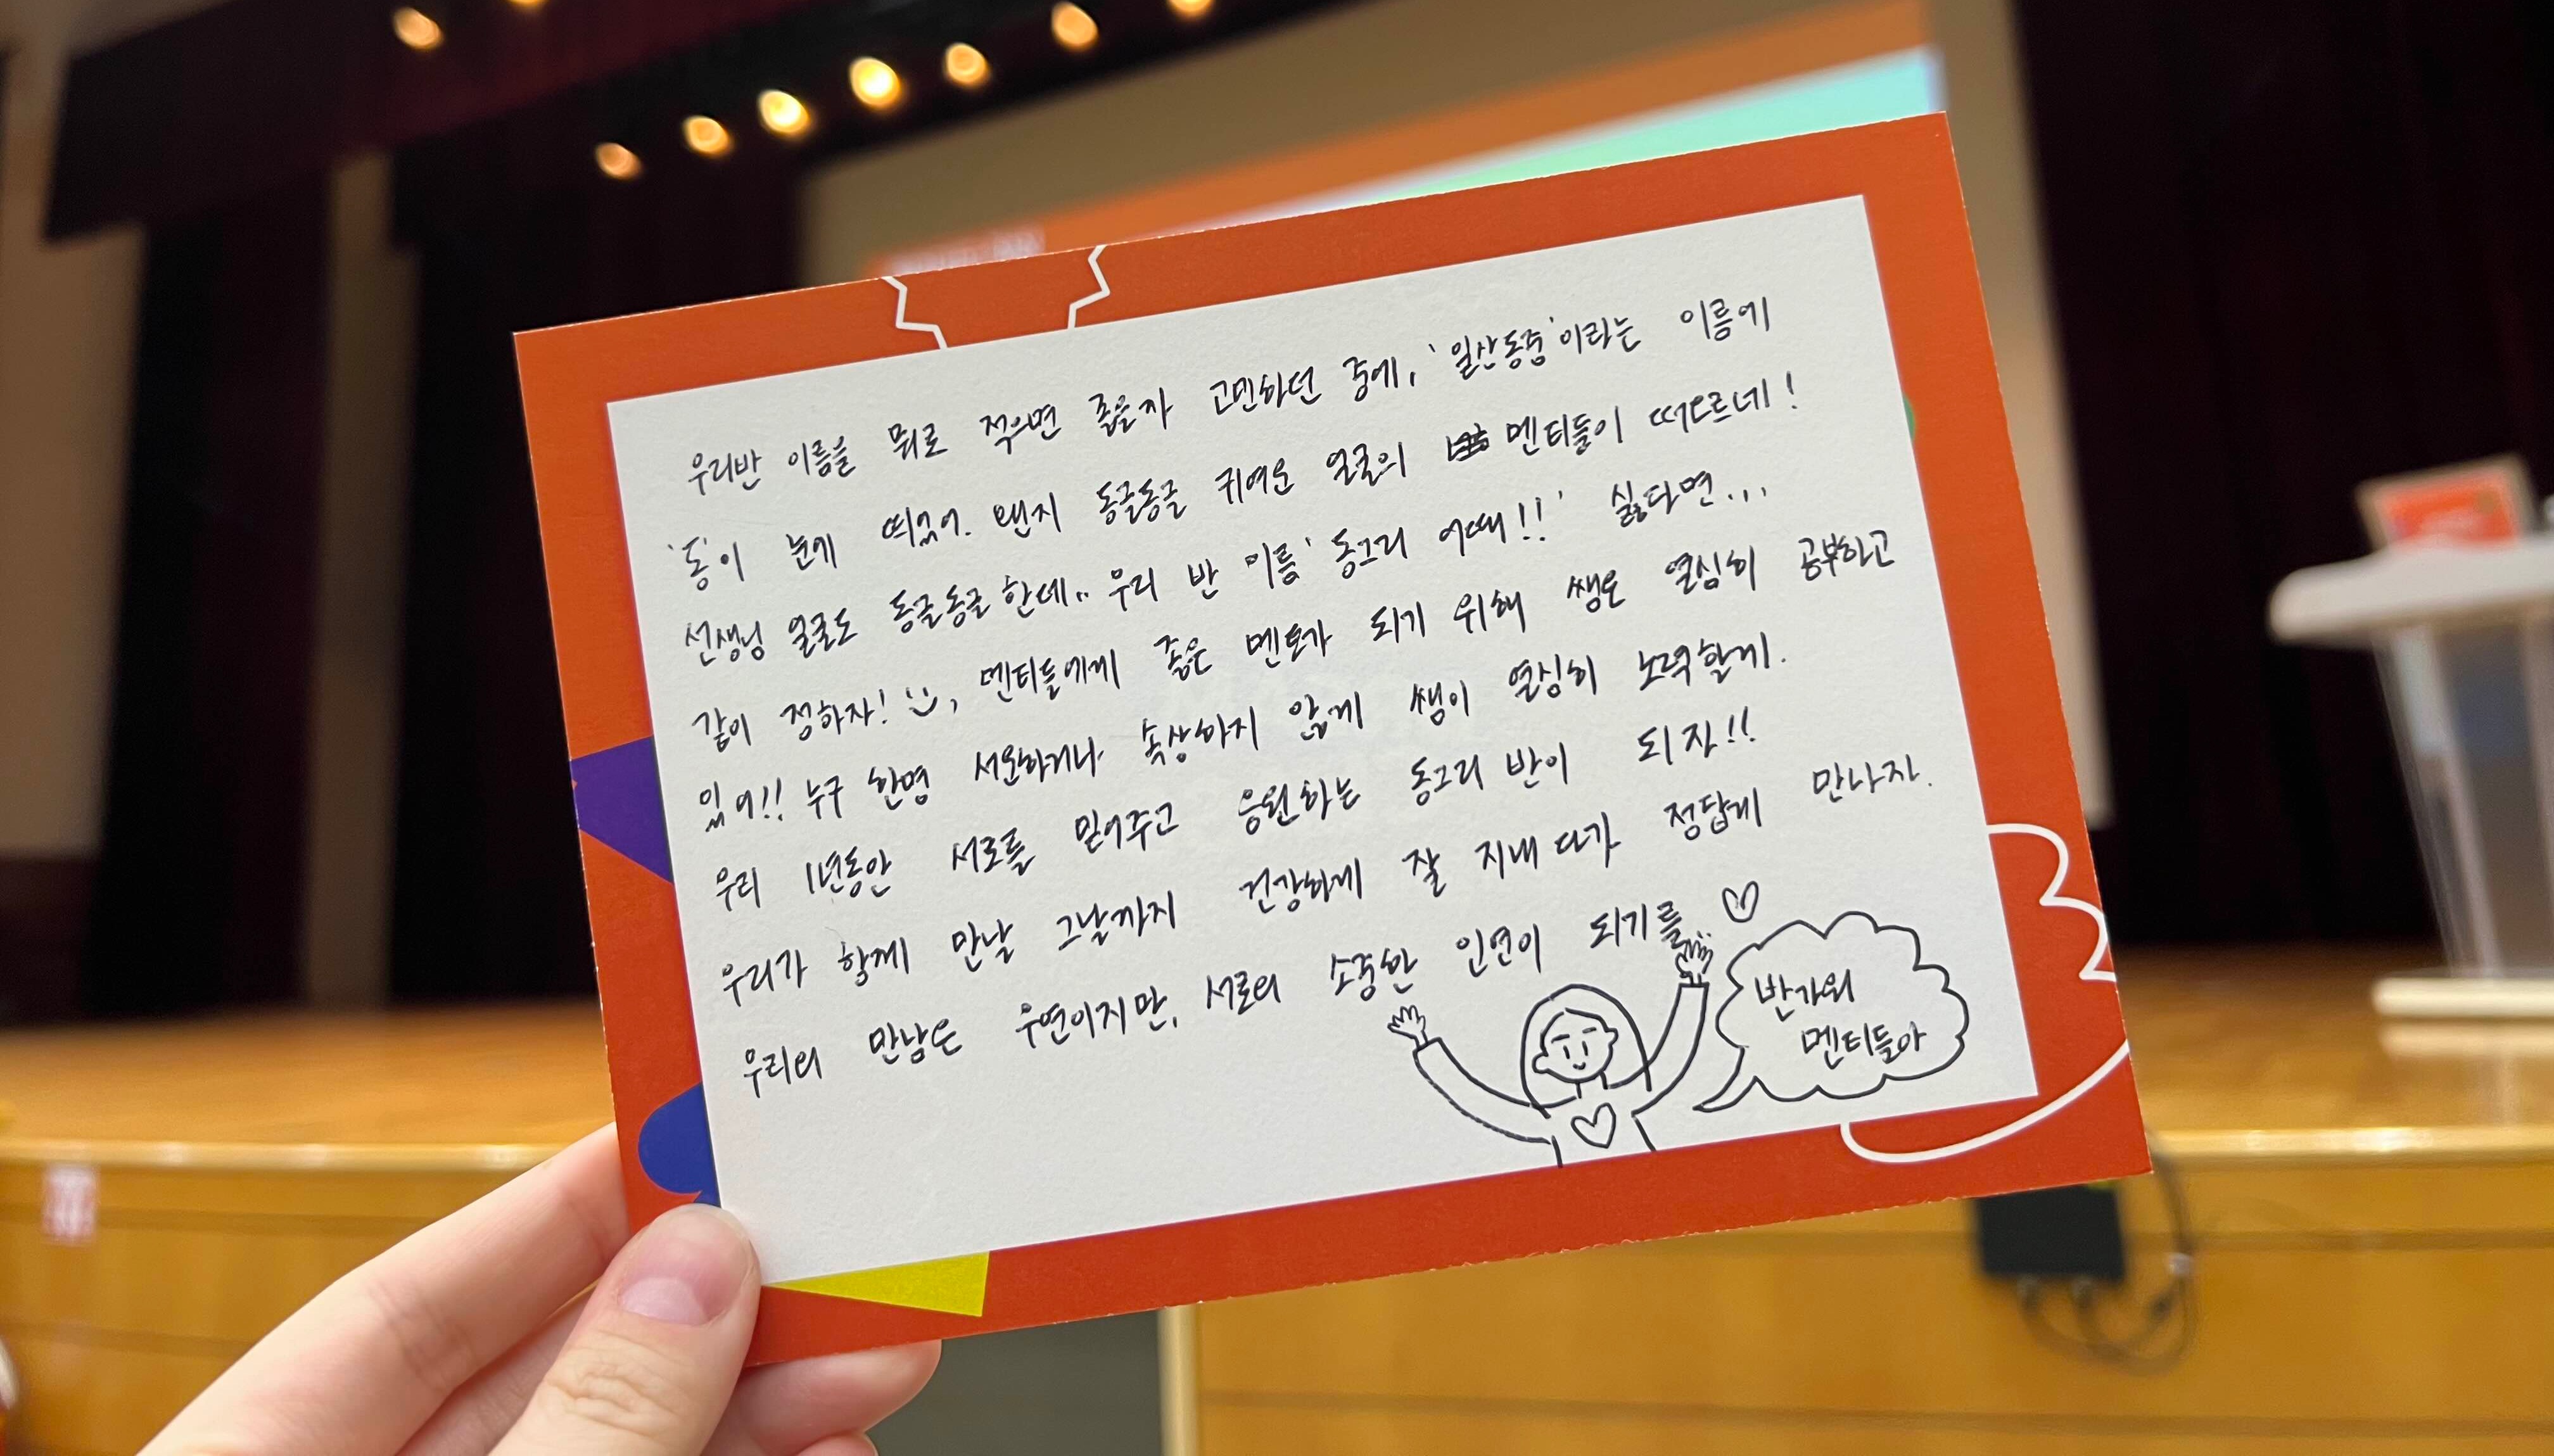 우리반 이름을 뭐로 적으면 좋을까 고민하던 중에, '일산동중'이라는 이름에
'동'이 눈에 띄었어. 왠지 동글동글 귀여운 얼굴의 멘티들이 떠오르네!
선생님 얼굴도 동글동글한데.. 우리 반 이름 '동그리 어때!!' 싫다면...
같이 정하자! 멘티들에게 좋은 멘토가 되기 위해 쌤은 열심히 공부하고
있어!! 누구 한명 서운하거나 속상하지 않게 쌤이 열심히 노력할게.
우리 1년동안 서로를 믿어주고 응원하는 동그리 반이 되자!!
우리가 함께 만날 그날까지 건강하게 잘 지내다가 정답게 만나자.
우리의 만남은 우연이지만, 서로의 소중한 인연이 되기를.. ♡
반가워
멘티들아